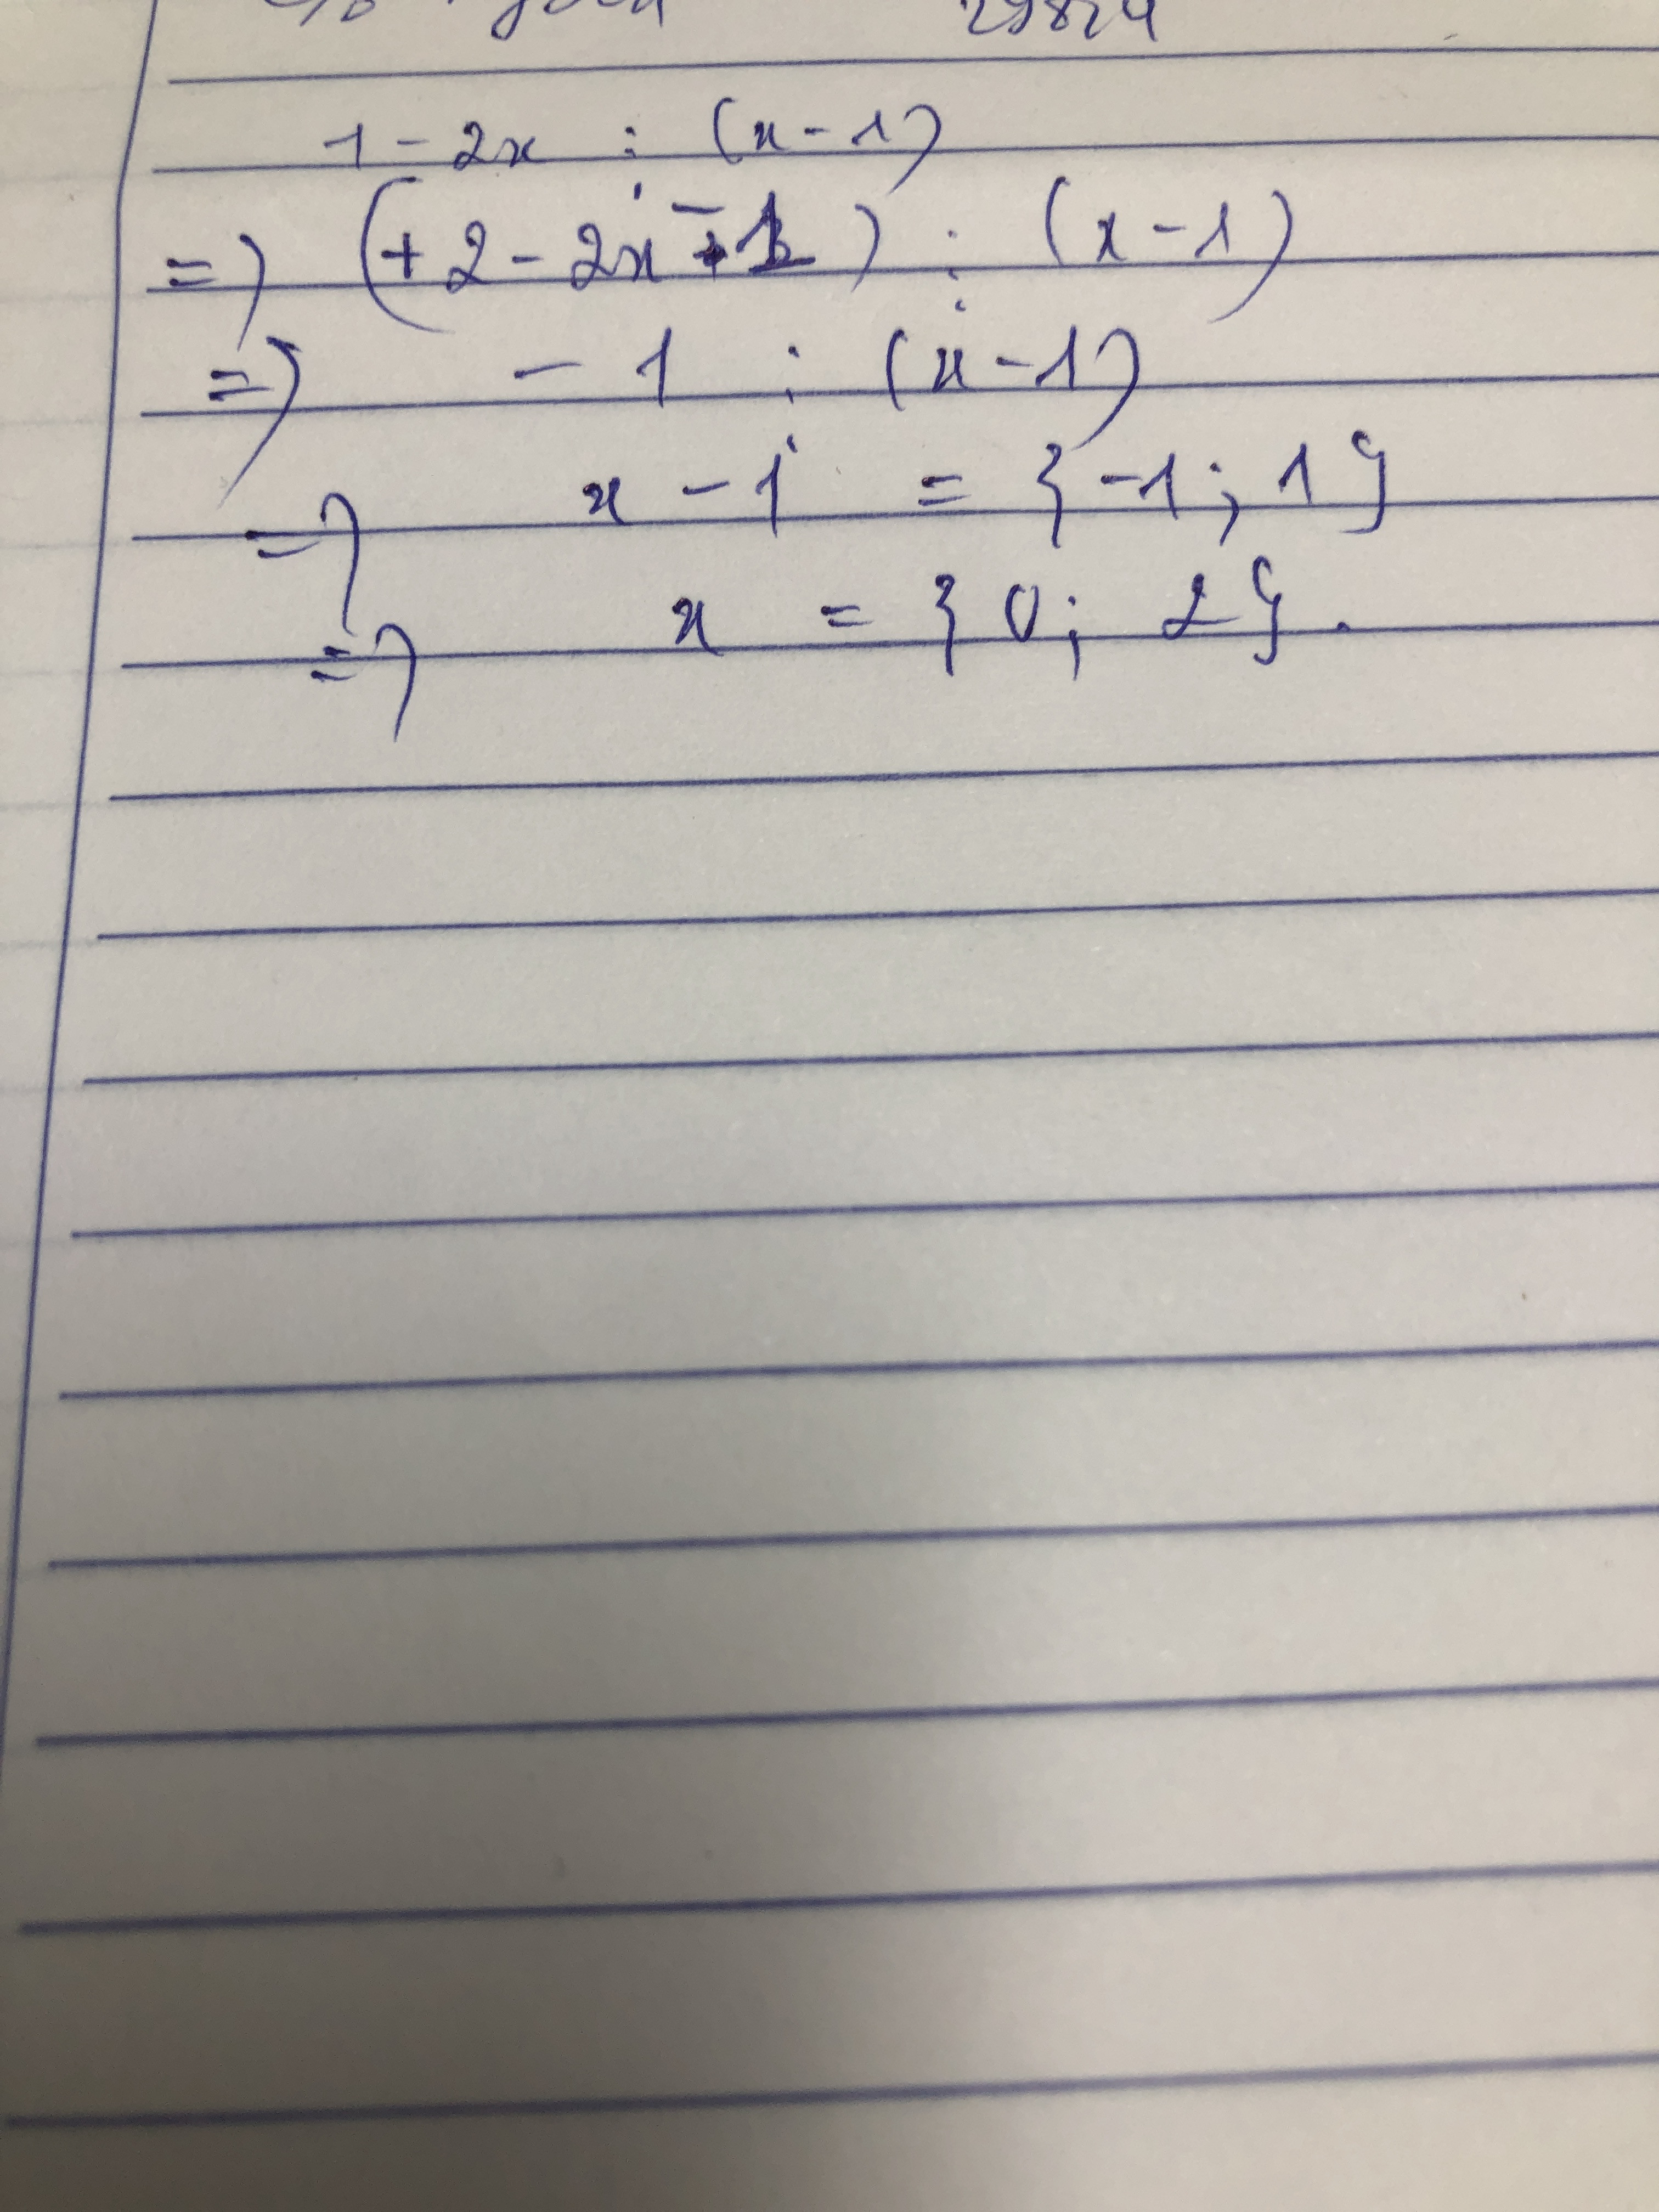 1 - 2x ⋮ (x - 1)
=> (+2 - 2x - 1) ⋮ (x - 1)
=> - 1 ⋮ (x - 1)
=> x - 1 = {-1; 1}
=> x = {0; 2}.